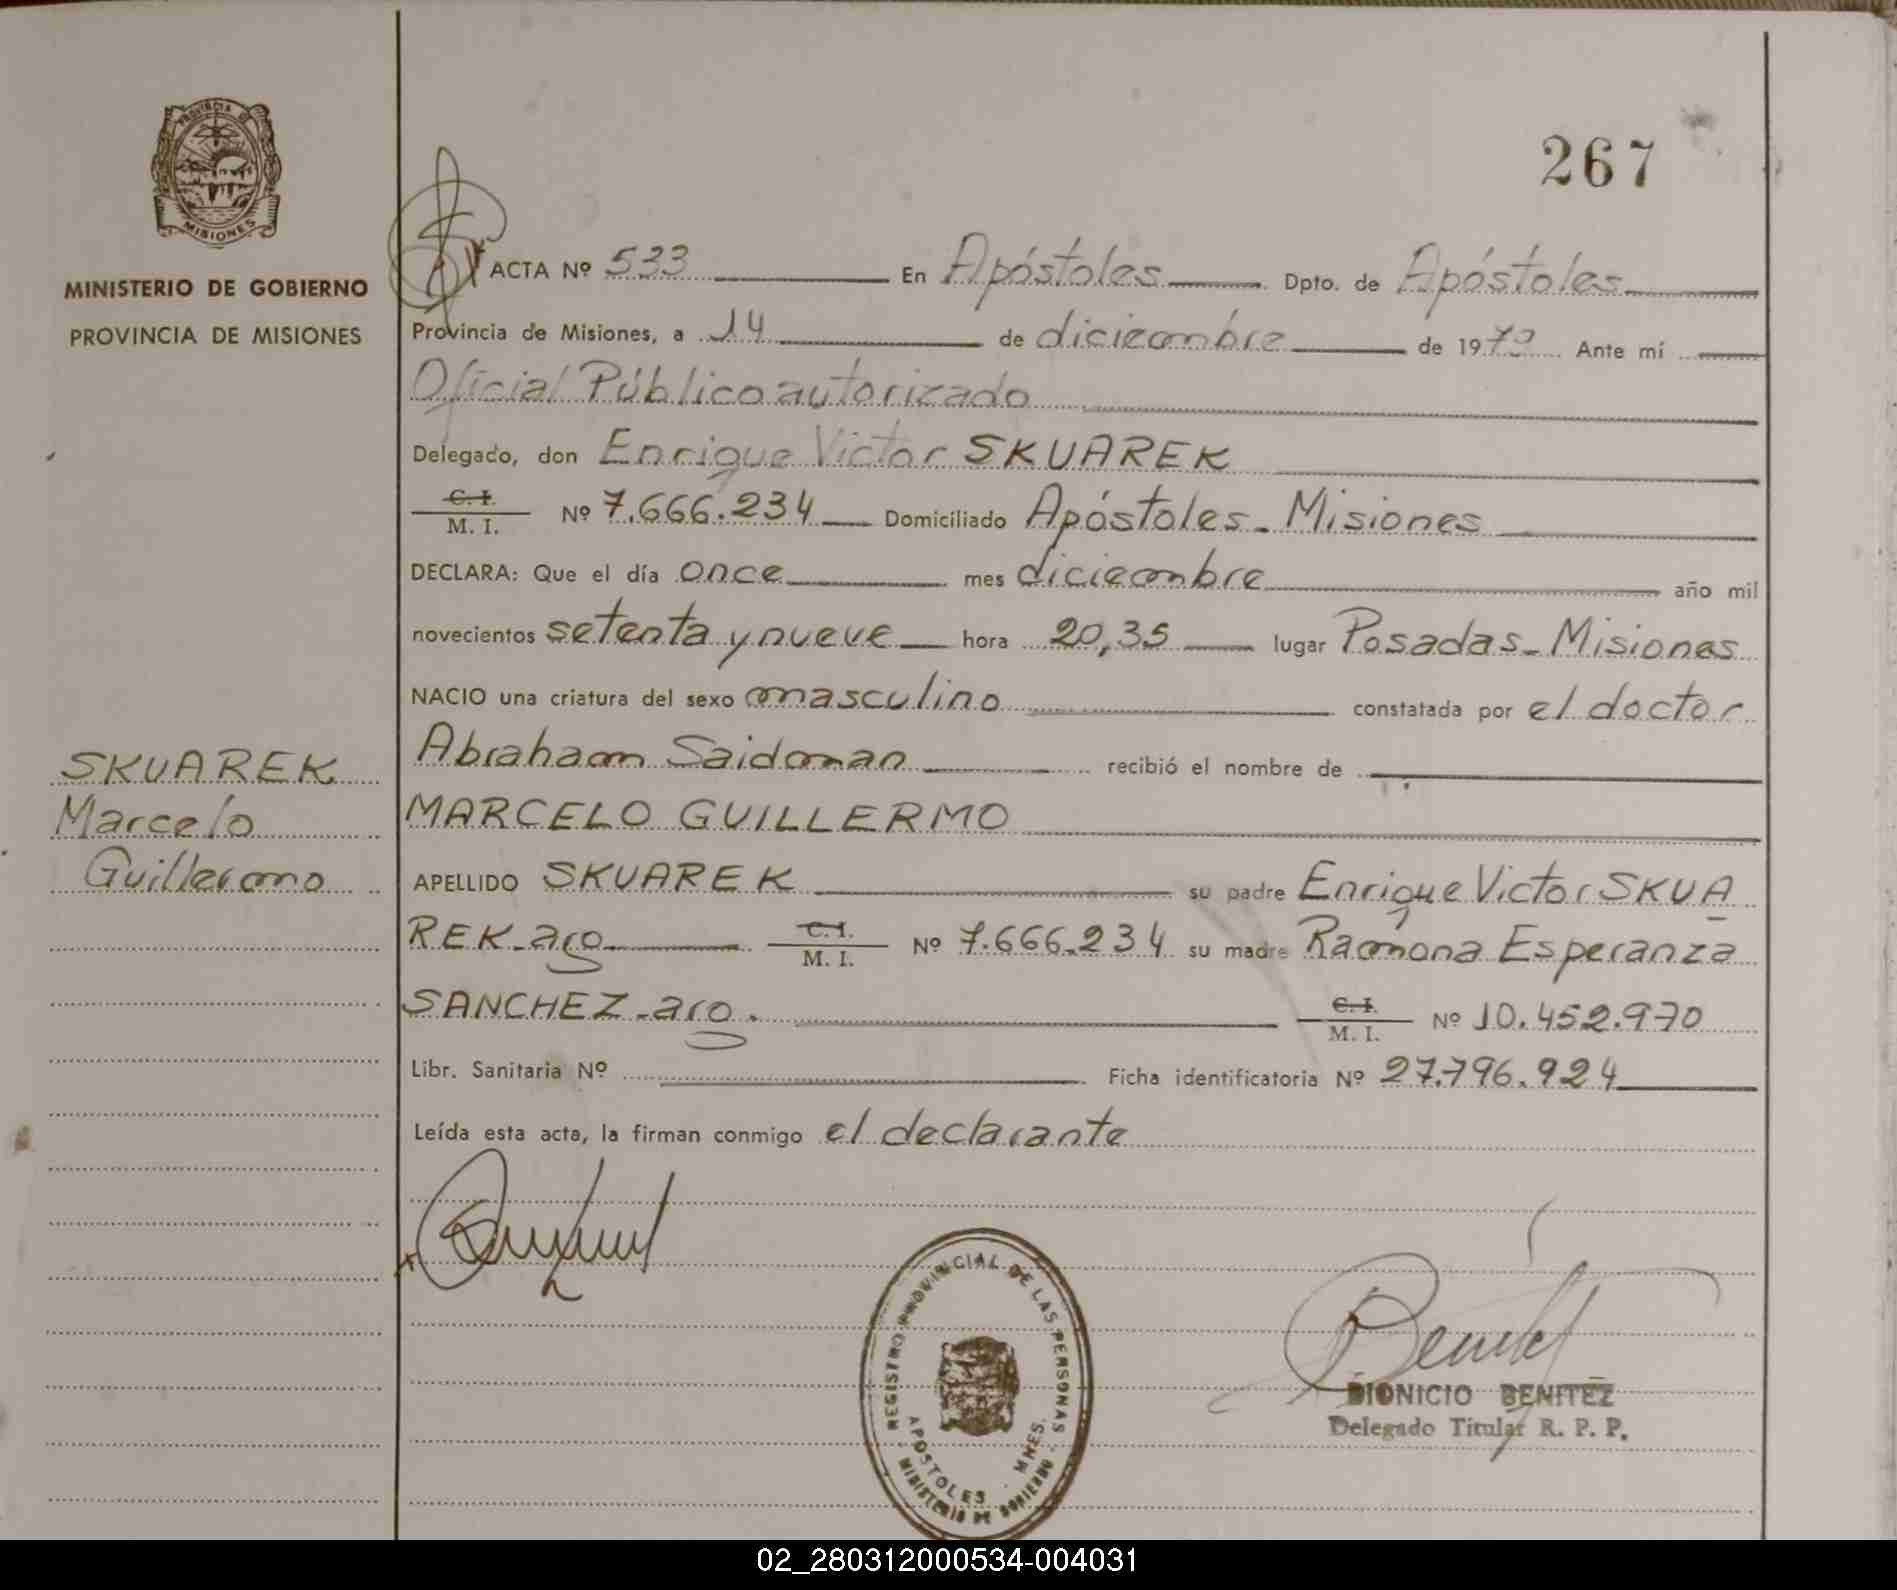 PROVINCIA DE
MISIONES
MINISTERIO DE GOBIERNO
PROVINCIA DE MISIONES
SKUAREK
Marcelo
Guillermo
267
ACTA Nº 533 En Apóstoles Dpto. de Apóstoles
Provincia de Misiones, a 14 de diciembre de 1979 Ante mí
Oficial Público autorizado
Delegado, don Enrique Victor SKUAREK
C. I.
M. I. Nº 7.666.234 Domiciliado Apóstoles - Misiones
DECLARA: Que el día once mes diciembre año mil
novecientos setenta y nueve hora 20,35 lugar Posadas - Misiones
NACIO una criatura del sexo masculino constatada por el doctor
Abraham Saidman recibió el nombre de
MARCELO GUILLERMO
APELLIDO SKUAREK su padre Enrique Victor SKUA
REK - arg C. I.
M. I. Nº 7.666.234 su madre Ramona Esperanza
SANCHEZ - arg. C. I.
M. I. Nº 10.452.970
Libr. Sanitaria Nº Ficha identificatoria Nº 27.796.924
Leída esta acta, la firman conmigo el declarante
REGISTRO PROVINCIAL DE LAS PERSONAS
APOSTOLES - MNES.
MINISTERIO DE GOBIERNO
DIONICIO BENITEZ
Delegado Titular R. P. P.
02_280312000534-004031